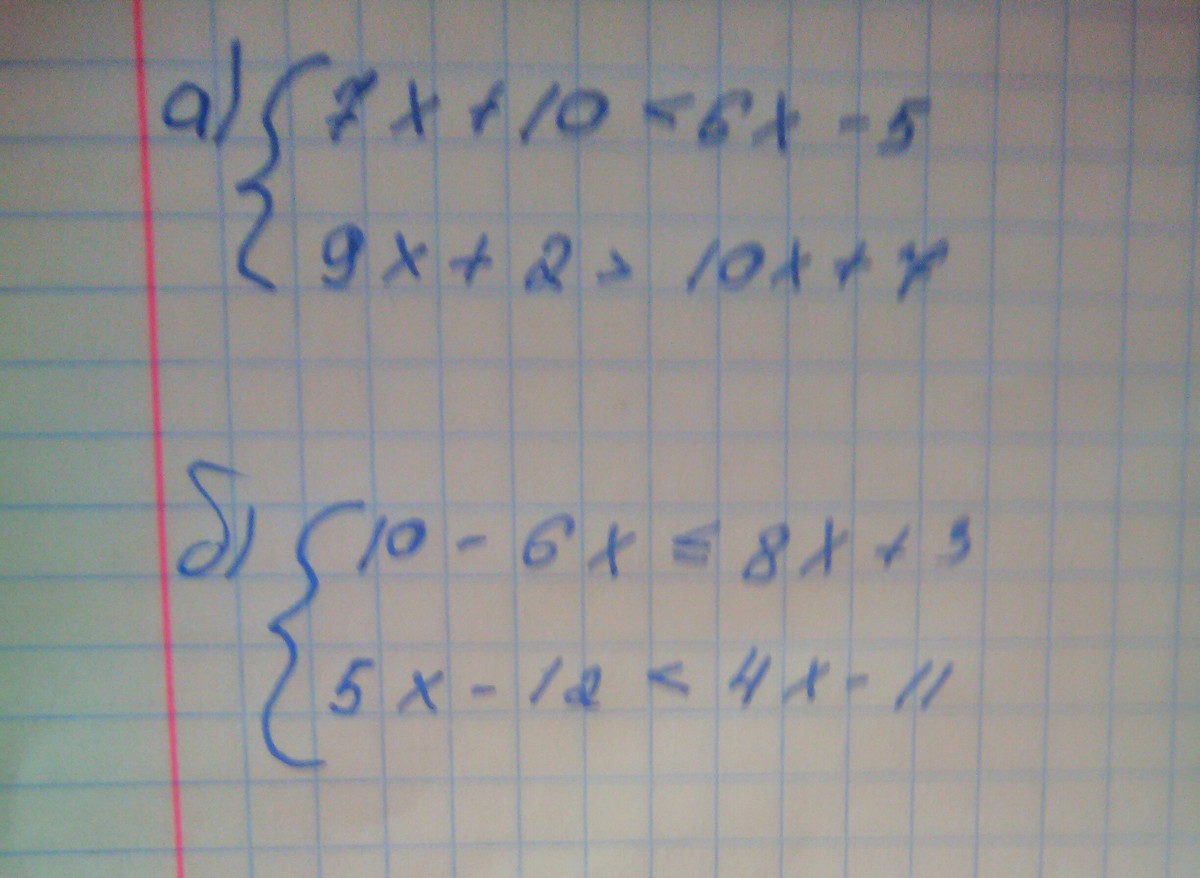 а) { 7x + 10 < 6x - 5
9x + 2 > 10x + 7
б) { 10 - 6x ≤ 8x + 3
5x - 12 < 4x - 11